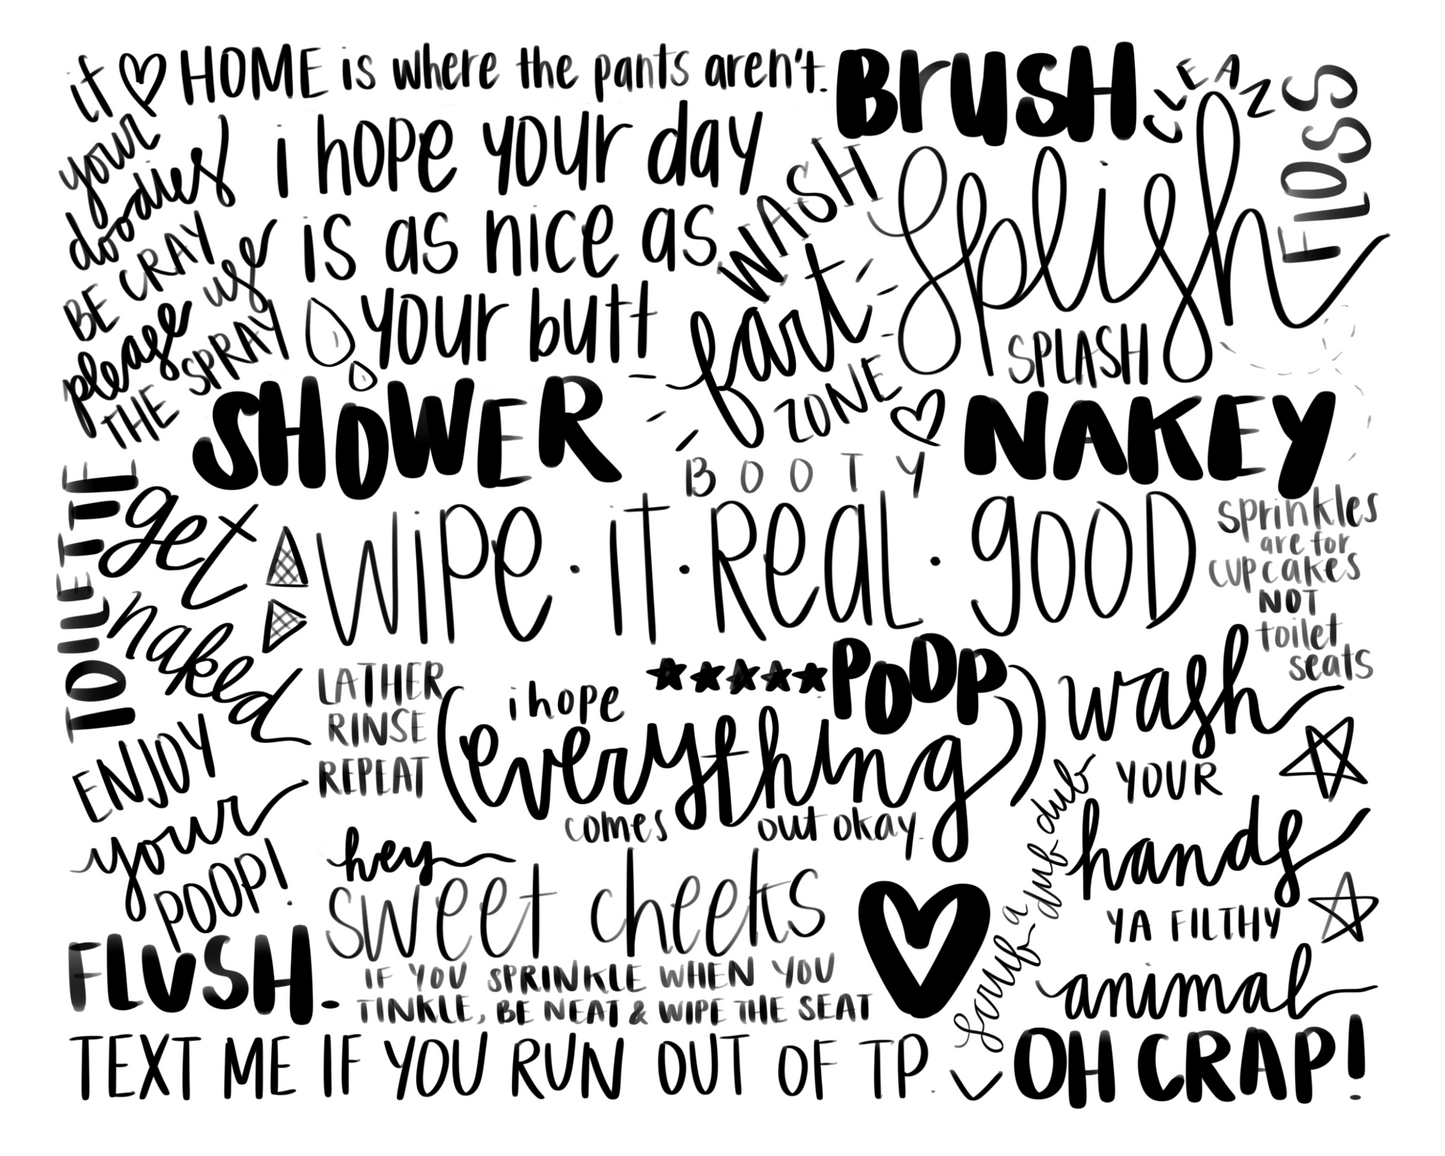 if
your
doodies
BE CRAY
please use
THE SPRAY
HOME is where the pants aren't.
i hope your day
is as nice as
your butt
BRUSH
CLEAN
FLOSS
WASH
splish
SPLASH
fart
ZONE
SHOWER
BOOTY
NAKEY
TOILETTE
get
naked
wipe · it · Real · good
sprinkles
are for
cupcakes
NOT
toilet
seats
LATHER
RINSE
REPEAT
POOP
(i hope
everything
comes out okay.)
wash
YOUR
hands
YA FILTHY
animal
ENJOY
your
POOP!
hey
sweet cheeks
rub a dub dub
FLUSH.
IF YOU SPRINKLE WHEN YOU
TINKLE, BE NEAT & WIPE THE SEAT
TEXT ME IF YOU RUN OUT OF TP.
OH CRAP!